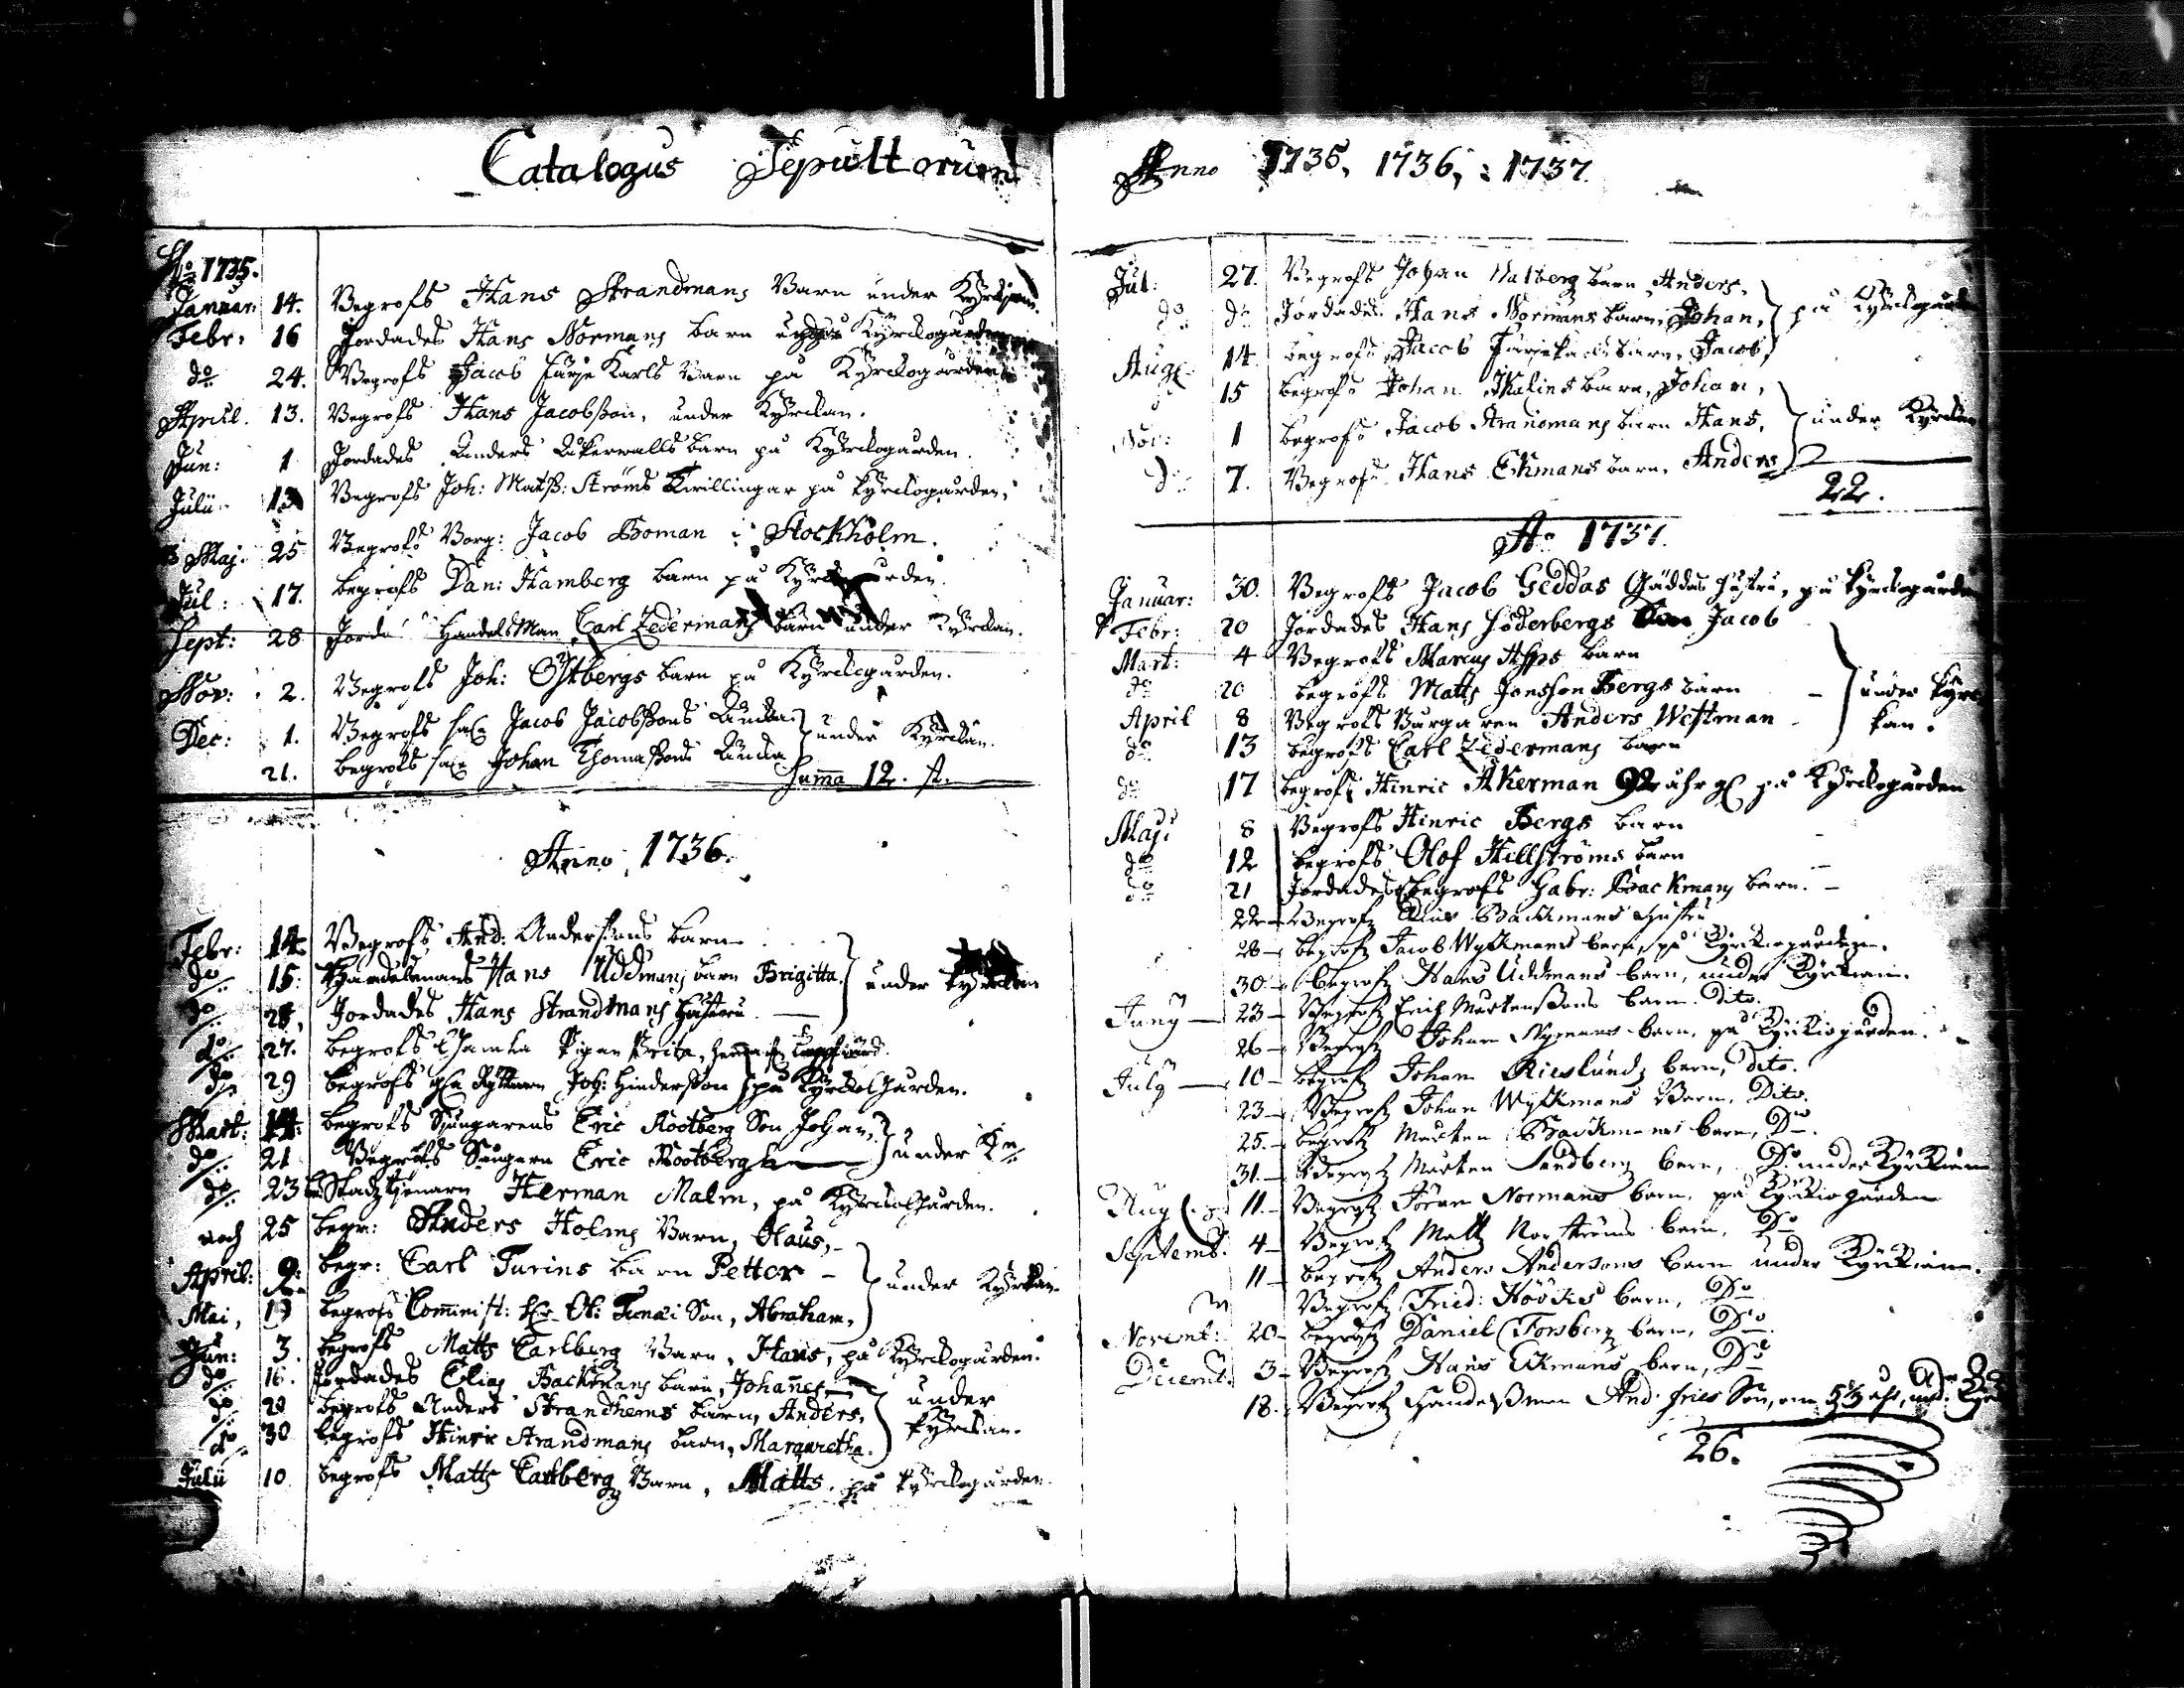 Catalogus Sepultorum
Ao 1735.
Januar: 14. Begrofs Hans Strandmans Barn under Kyrkian.
Febr: 16 Jordades Hans Normans barn Kyrckogården
do 24. Begrofs Jacob Färje Karls Barn på Kyrckogården
April. 13. Begrofs Hans Jacobsson, under Kyrckan.
Jun: 1 Jordades Anders Åkerwalls barn på Kyrckogården.
Julii 13 Begrofs Joh: Matss: Ströms Twillingar på kyrckogården,
Maj: 25 Begrofs Borg: Jacob Boman i Stockholm.
Jul: 17. begrofs Dan: Hamberg barn på Kyrckogården.
Sept: 28 Jorda Handelsman Carl Zedermans barn under Kyrckan.
Nov: 2. Begrofs Joh: Östbergs barn på Kyrckogården.
Dec: 1. Begrofs Jacob Jacobssons Änckia } under Kyrckan.
21. begrofs Johan Thomassons Änckia
Summa 12. st.
Anno 1736.
Febr: 14. Begrofs And: Anderssons barn
do 15: Handelsmans Hans Uddmans barn Brigitta. } under kyrckan
do Jordades Hans Strandmans Hustru
do 27. begrofs Gamla Pigan Brita,
do 29 begrofs Joh: Hindersson på Kyrckogården.
Mart: 14: begrofs Eric Rootberg Son Johan, } under Kn
do 21 Begrofs Eric Rootberg
do 23 Stadztjenarn Herman Malm, på Kyrckogården.
25 begr: Anders Holms Barn, Olaus,
April: 9: begr: Carl Turins barn Petter } under Kyrckan.
Mai, begrofs Comminist: Ol: Son, Abraham,
Jun: 3. begrofs Matts Carlberg Barn, Hans, på Kyrckogården.
do 16. Jordades Elias Backmans barn, Johannes } under
do 20 begrofs Anders Strandhems barn, Anders, kyrckan.
do 30 begrofs Hinric Strandmans barn, Margaretha.
Julii 10 begrofs Matts Carlberg Barn, Matts, på kyrckogården.
Anno 1735, 1736, 1737.
Jul: 27. Begrofs Johan Walberg barn Anders,
do do Jordades Hans Normans barn, Johan, } på Kyrckogården
Aug: 14. begrofs Jacob Färjekarls barn, Jacob,
15 begrofs Johan Thalins barn, Johan,
Nov: 1 begrofs Jacob Strandmans barn Hans, } under Kyrckan
do 7. Begrofs Hans Ekmans barn, Anders
22.
Ao 1737.
Januar: 30. Begrofs Jacob Geddas Gäddas hustru, på kyrckogården
Febr: 20 Jordades Hans Söderbergs Son Jacob
Mart: 4 Begrofs Marcus Asps barn
do 20 begrofs Matts Jonsson Bergs barn } under kyrc
April 8 Begrofs Borgaren Anders Westman kan.
do 13 begrofs Carl Zedermans barn
do 17 begrofs Hinric Åkerman 92 åhr gl på Kyrckogården
Maji 8 Begrofs Hinric Bergs barn
do 12 begrofs Olof Hellströms barn
do 21 Jordades begrofs Gabr: Backmans barn.
22 Begrofs Elias Backmans Hustru
28 begrofs Jacob Wykmans barn, på Kyrkiogården.
30 begrofs Hans Uddmans barn, under Kyrkian.
Juny 23 Begrofs Erich Mårtenssons barn dito.
26 Begrofs Johan Nymans barn, på Kyrkiogården.
July 10 begrofs Johan Rieslunds barn, dito.
23 Begrofs Johan Wykmans Barn, Dito.
25. begrofs Mårten Backmans barn, Do.
31. Begrofs Mårten Sandberg barn, Do. under Kyrkian
Aug. 11. Begrofs Jöran Normans barn, på Kyrkiogården
Septemb. 4 Begrofs Matts Norströms barn, Do
11 begrofs Anders Andersons barn under Kyrkian.
Begrofs Fried: Hööks barn, Do
Novemb: 20 begrofs Daniel Forsberg barn, Do.
Decemb. 3 Begrofs Hans Ekmans barn, Do
18. Begrofs Handelsman And: fries Son, om åhr,
26.